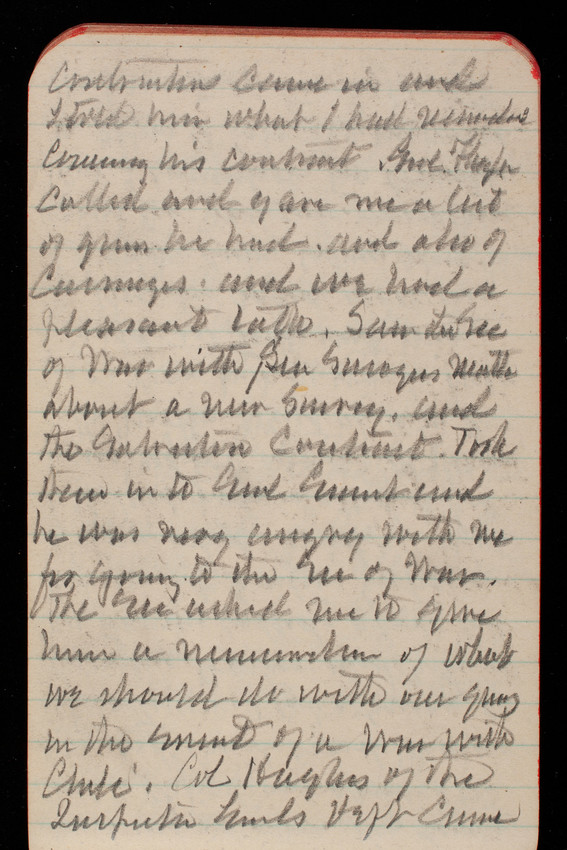 Contractor came in and
I told him what I had
his contract. Genl.
called and gave me a list
of guns he had. and also of
Carriages. and we had a
pleasant talk. Saw the Sec
of War with Gen
about a new Survey. and
the Galveston Contract. Took
them in to Genl and
he was very angry with me
for going to the Sec of War.
The Sec asked me to give
him a memorandum of what
we should do with our guns
in the event of a War with
Chili. Col Hughes of the
Inspector Genls Dept Came